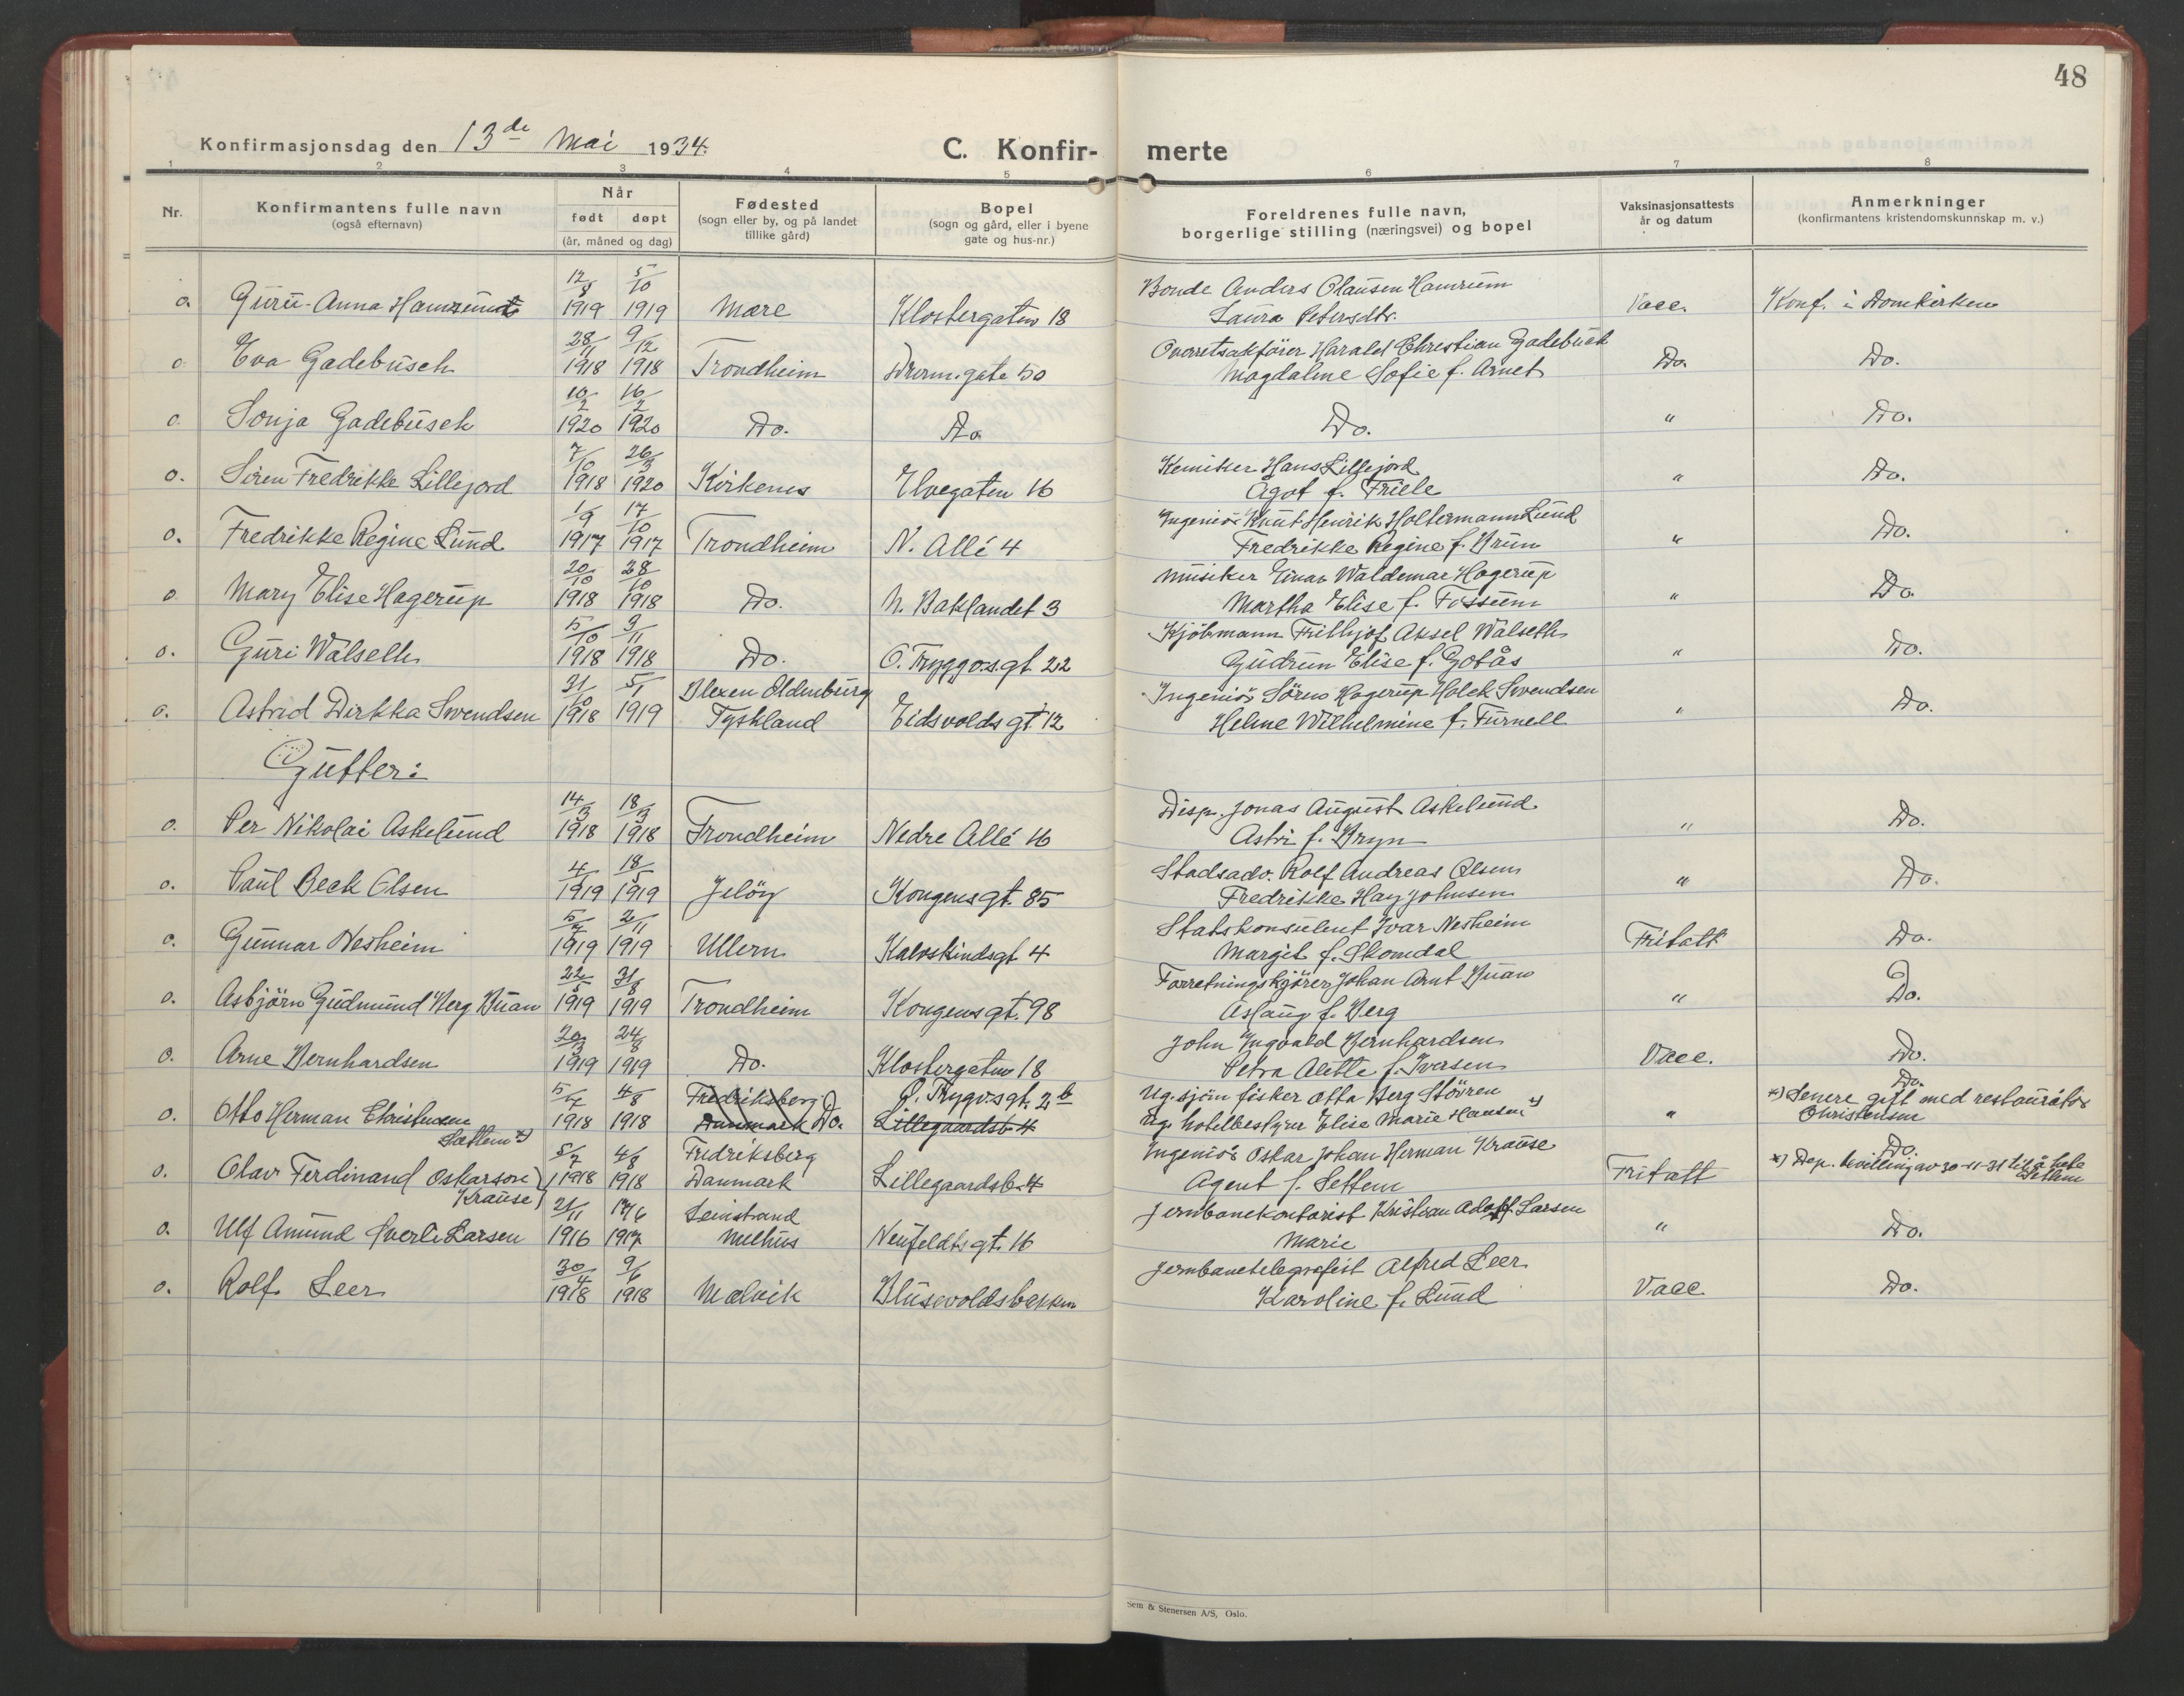 48
Konfirmasjonsdag den 13de Mai 1934.
C. Konfirmerte
1 2 3 4 5 6 7 8
Nr. Konfirmantens fulle navn (også efternavn) Når født døpt (år, måned og dag) Fødested (sogn eller by, og på landet tillike gård) Bopel (sogn og gård, eller i byene gate og hus-nr.) Foreldrenes fulle navn, borgerlige stilling (næringsvei) og bopel Vaksinasjonsattests år og datum Anmerkninger (konfirmantens kristendomskunnskap m. v.)
12/8 5/10 Bonde Anders Olausen Hamrum
o. Guru-Anna 1919 1919 Mære Klostergaten 18 Laura Petersdtr. Vacc. Konf. i Domkirken
28/11 9/12 Overretsakfører Harald Christian Gadebusch
o Eva Gadebusch 1918 1918 Trondheim gate 50 Magdalene Sofie f. Arnet Do. Do.
10/2 16/2
o. Sonja Gadebusch 1920 1920 Do. Do Do. " Do.
7/10 26/3 Kemiker Hans Lillejord
o. Siren Fredrikke Lillejord 1918 1920 Kirkenes Elvegaten 16 Ågot f. Friele " Do.
1/9 17/10 Ingeniør Knut Henrik Holtermann Lund
o. Fredrikke Regine Lund 1917 1917 Trondheim N. Allé 4 Fredrikke Regine f. Brun " Do.
20/10 28/10 Musiker Einar Waldemar Hagerup
o Mary Elise Hagerup 1918 1918 Do. N. Baklandet 3 Martha Elise f. Fossum " Do.
5/10 9/11 Kjøbmann Frithjof Aksel Walseth
o. Guri Walseth 1918 1918 Do. O. Tryggv.s.gt. 22 Gudrun Elise f. Gotås " Do.
31/10 5/1 Blexen Oldenburg Ingeniør Sören Hagerup Holck Svendsen
o. Astrid Dirkka Svendsen 1918 1919 Tyskland Eidsvolds gt. 12 Helene Wilhelmine f. Furnell " Do.
Gutter:
14/3 18/9 Disp. Jonas August Askelund
o. Per Nikolai Askelund 1918 1918 Trondheim Nedre Allé 16 Astri f. Bryn " Do.
4/1 18/5 Stadsadv. Rolf Andreas Olsen
o. Paul Beck Olsen 1919 1919 Jelöy Kongensgt. 85 Fredrikke Hay Johnsen " Do.
5/7 2/11 Statskonsulent Ivar Nesheim
o. Gunnar Nesheim 1919 1919 Ullern Kalvskindsgt. 4 Margit f. Skomdal Fritatt Do.
22/5 31/8 Forretningskjører Johan Arnt Buan
o. Asbjörn Gudmund Berg Buan 1919 1919 Trondheim Kongensgt. 98 Aslaug f. Berg " Do.
20/3 24/8 John Ingvald Bernhardsen
o. Arne Bernhardsen 1919 1919 Do. Klostergaten 18 Petra Alette f. Iversen Vacc. Do.
5/7 4/8 Fredriksberg O. Trygv.s.gt. 2b Ug. sjöm. fisker Otto Berg Stövren Do.
o. Otto Herman Christensen 1918 1918 Danmark Do. Lillegaardsb. 4 Ug. hotelbestyrer Elise Marie Hansen x) " x) Senere gift med restauratör Christensen
Sættem x) 5/7 4/8 Fredriksberg Ingeniör Oskar Johan Herman Krause Do.
o. Olav Ferdinand Oskarson 1918 1918 Danmark Lillegaardsb. 4 Agent f. Settem Fritatt x) Dep. bevilling av 30-11-31 til å hete Settem
Krause 21/11 17/6 Leinstrand Jernbanekontorist Kristian Adolf Larsen
o. Ulf Amund Sverli Larsen 1916 1917 Melhus Neufeldts gt. 16 Marie " Do.
30/4 9/6 Jernbanetelegrafist Alfred Leer
o. Rolf Leer 1918 1918 Malvik Blusevoldsbakken Karoline f. Lund Vacc. Do.
Sem & Stenersen A/S, Oslo.